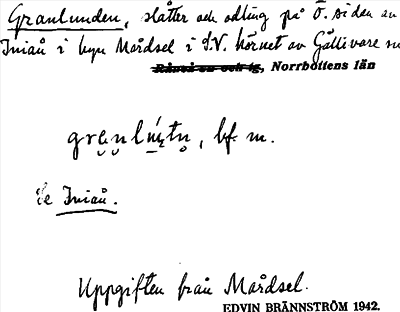 Granlunden, slåtter och odling på Ö. sidan av
Iniaů i byn Mårdsel i S.V. hörnet av Gällivare sn
Råneå sn och tg, Norrbottens län
bf. m.
Se Iniaů.
Uppgiften från Mårdsel.
EDVIN BRÄNNSTRÖM 1942.